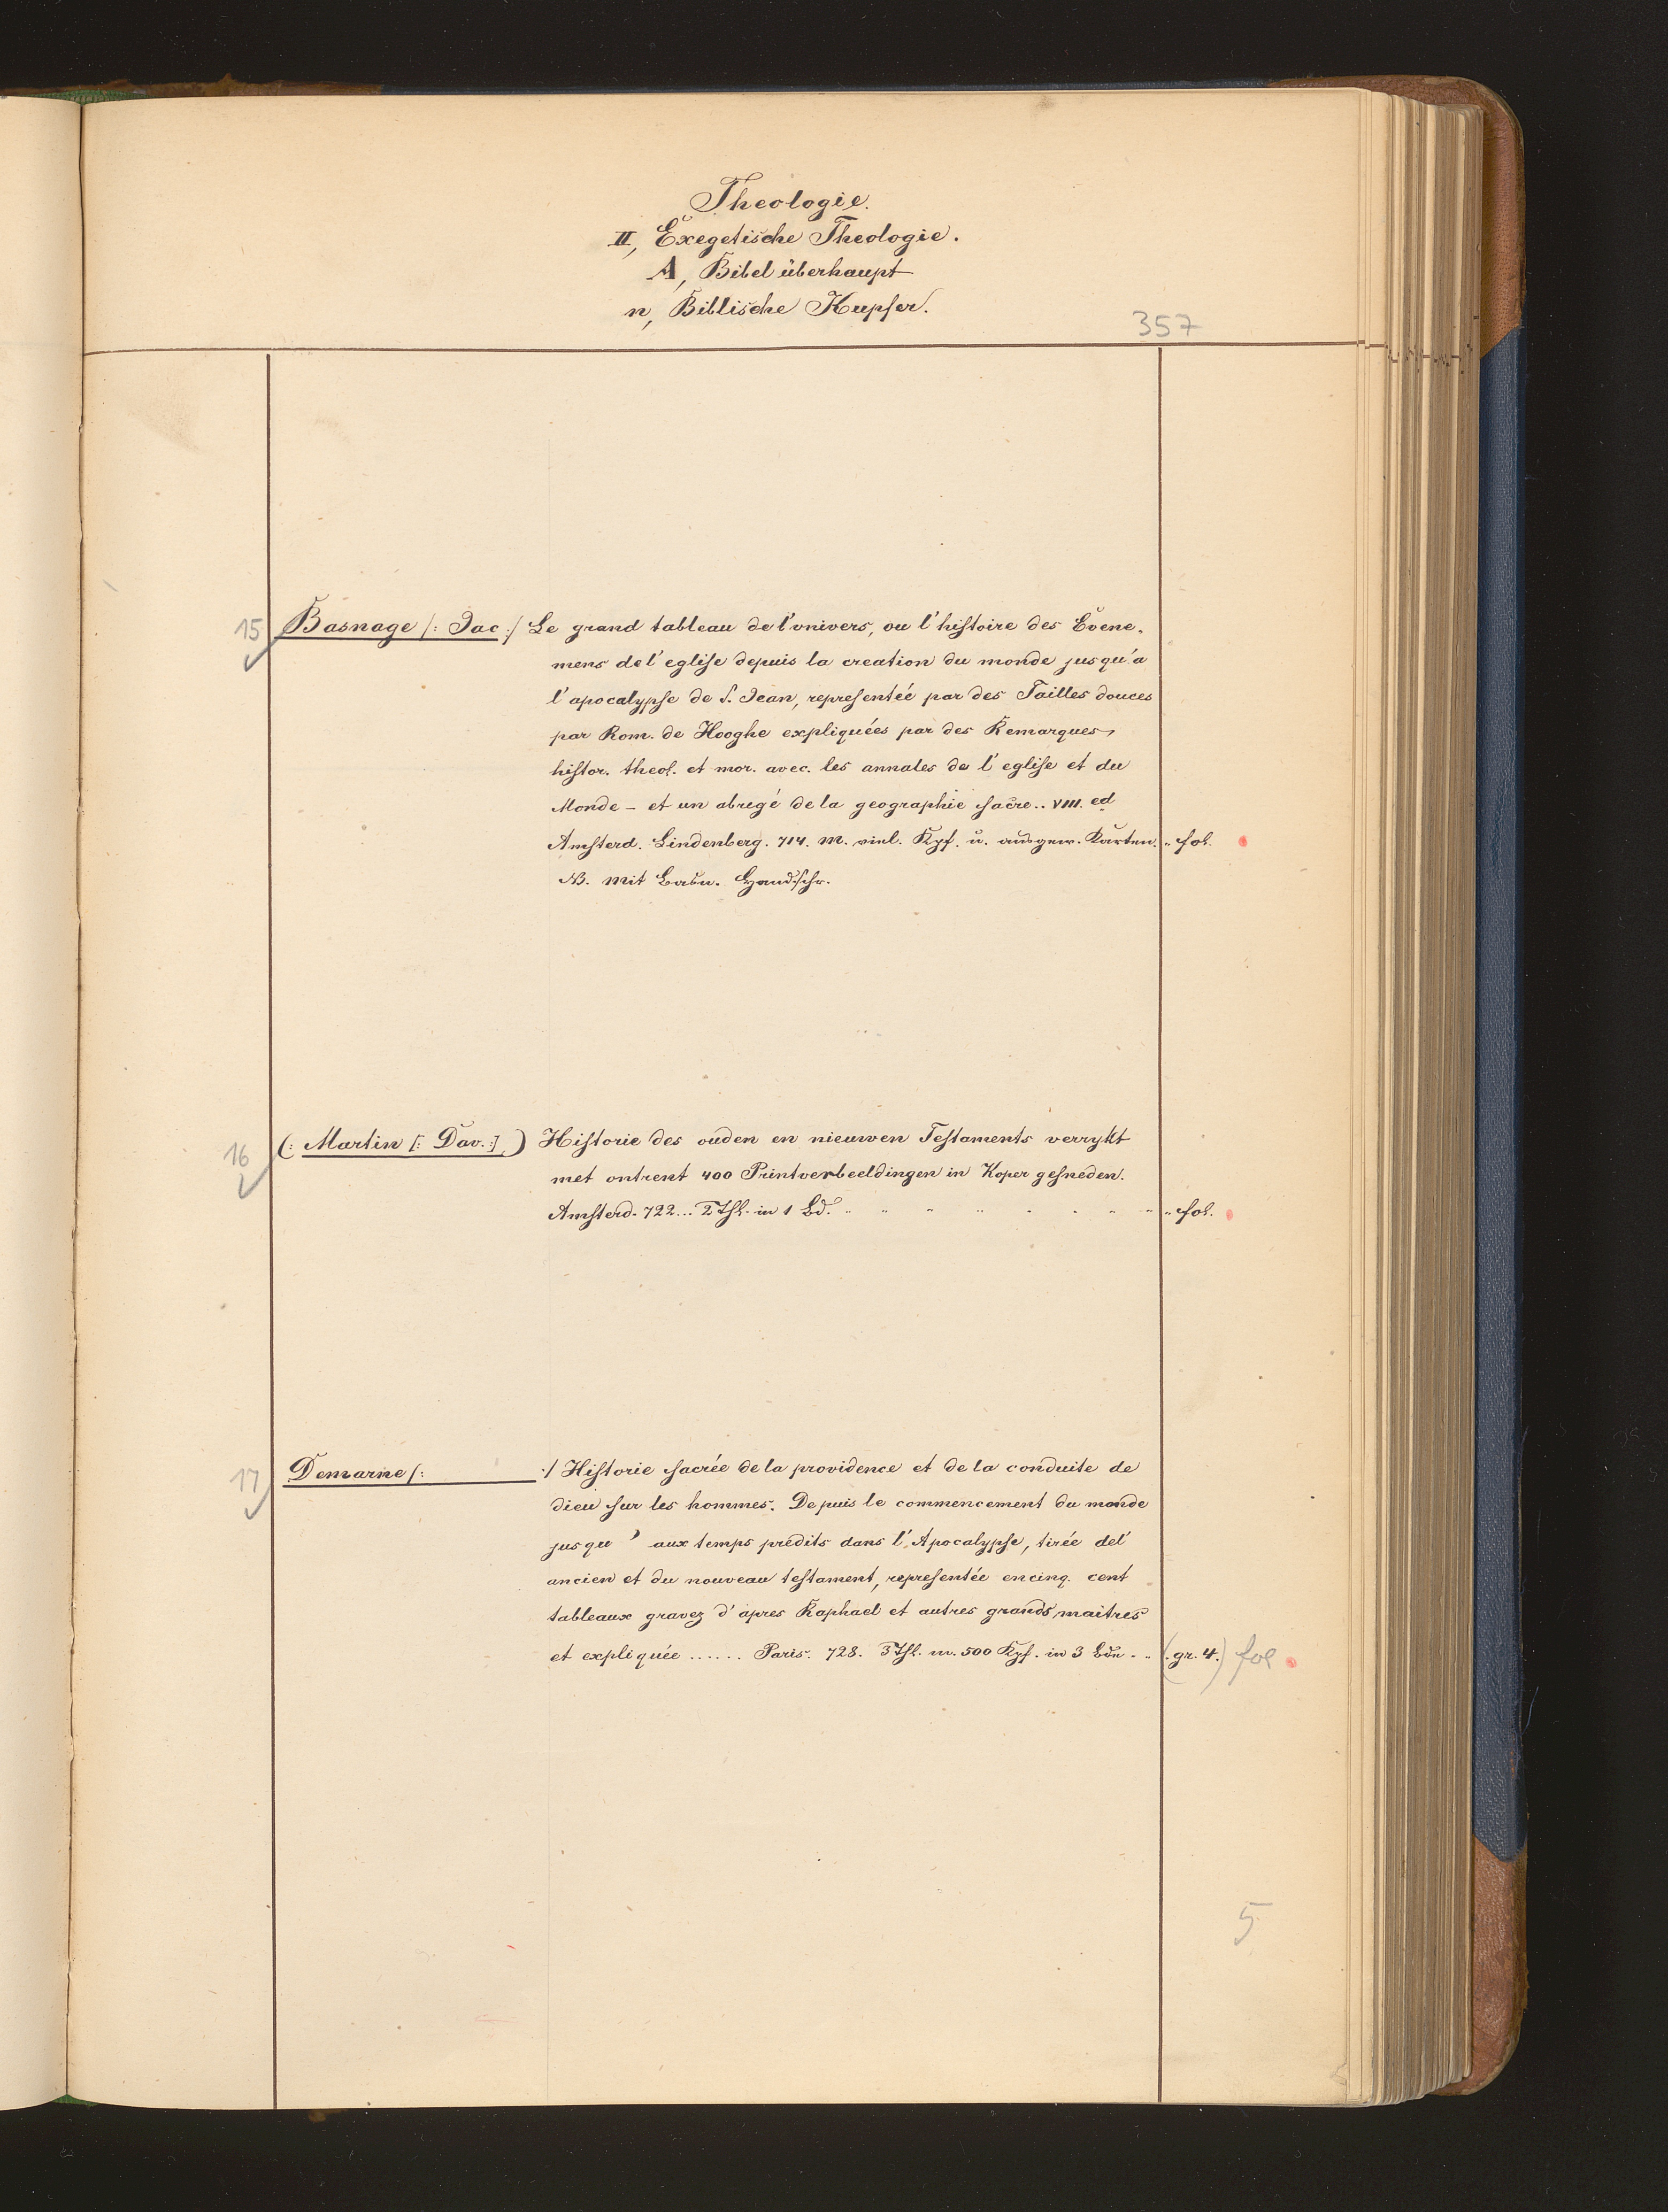 Theologie.
II, Exegetische Theologie.
A, Bibel überhaupt
n, Biblische Kupfer.
357
15 Basnage /: Jac :/ Le grand tableau de l'univers, ou l'histoire des Evene-
mens de l'eglise depuis la creation du monde jusqu'a
l'apocalypse de S. Jean, representéé par des Tailles douces
par Rom. de Hooghe expliquées par des Remarques,
histor. theol. et mor. avec. les annales de l'eglise et du
Monde – et un abregé de la geographie sacre.. VIII. ed
Amsterd. Lindenberg. 714. m. viel. Kpf. u. ausgew. Karten. " fol.
NB. mit Handschr.
16 (: Martin [: Dav. :] ) Historie des ouden en nieuwen Testaments verrykt
met ontrent 400 Printverbeeldingen in Koper gesneden.
Amsterd. 722... 2 Thl. in 1 Bd. " " " " " " " " " fol.
17 Demarne /: :/ Historie sacrée de la providence et de la conduite de
dieu sur les hommes. Depuis le commencement du monde
jusqu' aux temps predits dans l'Apocalypse, tirée del'
ancien et du nouveau testament, representée en cinq. cent
tableaux gravez d'apres Raphael et autres grands maitres
et expliquée ...... Paris. 728. 3 Thl. m. 500 Kpf. in 3 Bdn. " (gr. 4.) fol
5